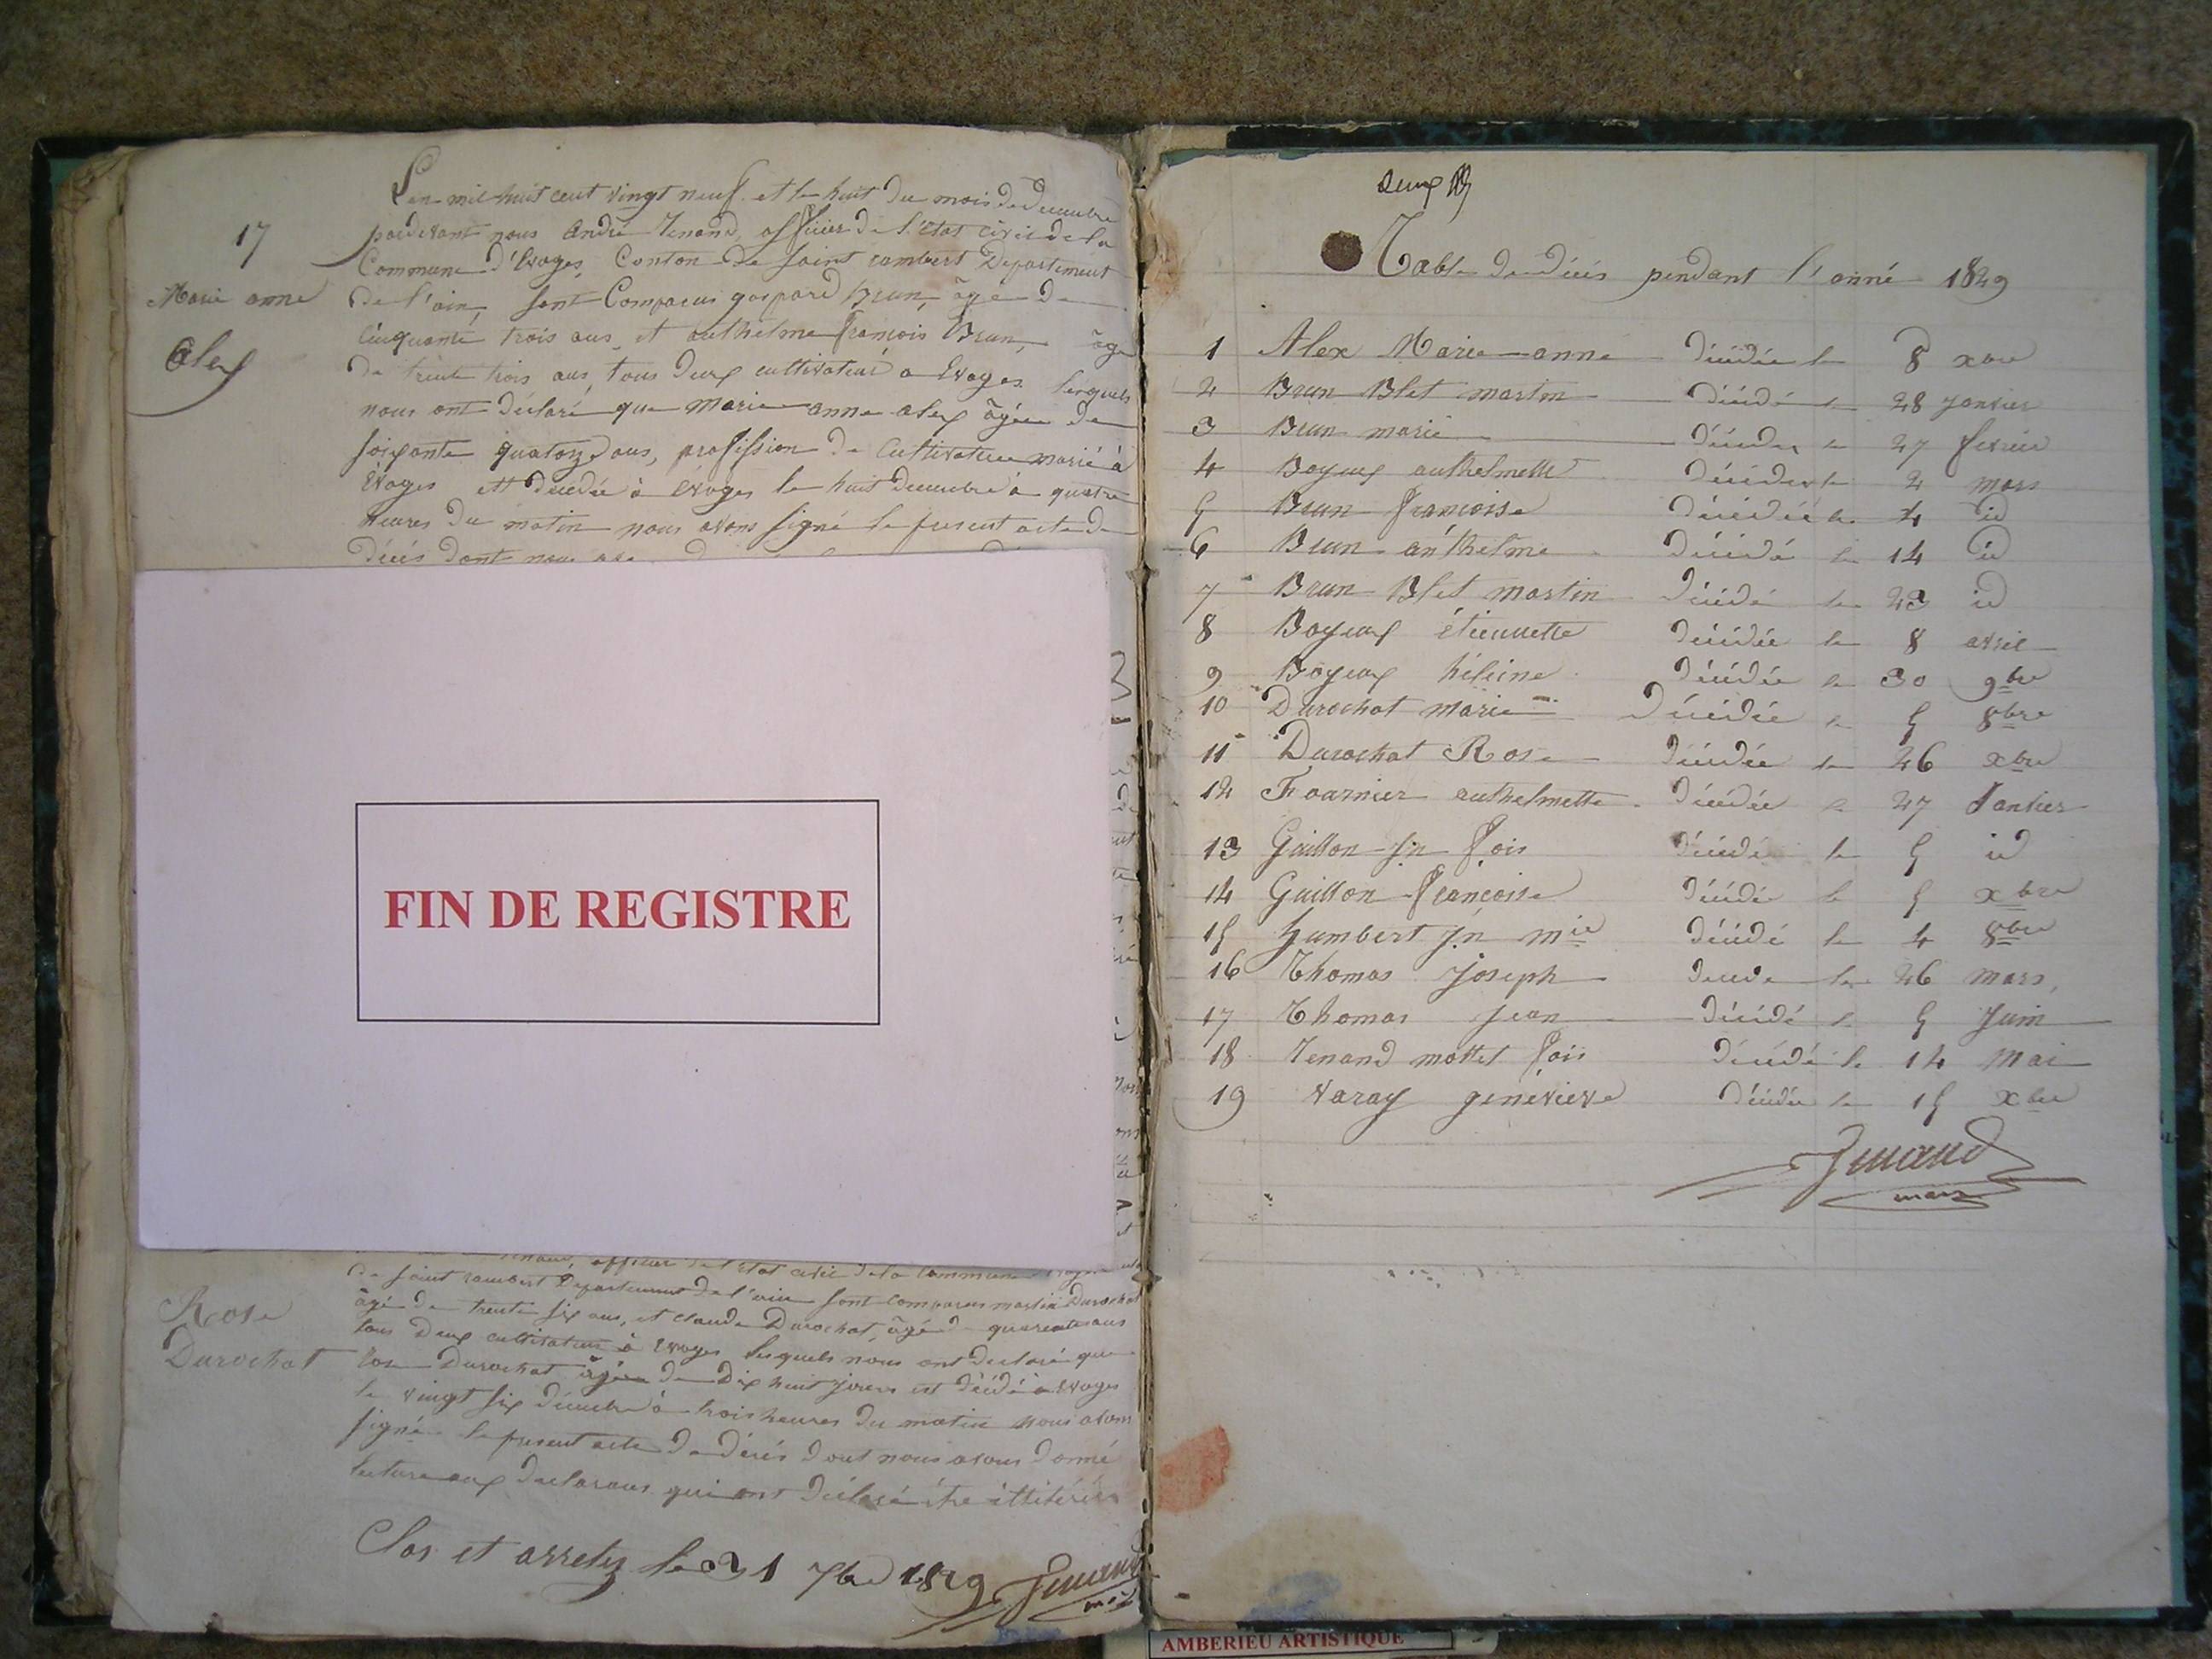 17
Marie anne
Alex
L'an mil huit cent vingt neuf et le huit du mois de Decembre
pardevant nous André Tenand, officier de l'Etat civil de la
Commune d'Evoges, Canton de saint rambert Departement
de l'ain, sont Comparus gaspard brun, âgé de
cinquante trois ans, et anthelme françois Brun, âgé
de trente trois ans, tous deux cultivateur a Evoges lesquels
nous ont déclaré que marie anne alex âgée de
soixante quatorze ans, profession de cultivateur marié à
Evoges est décédée à évoges le huit decembre à quatre
heures du matin nous avons signé le present acte de
décès dont nous
FIN DE REGISTRE
officier de l'Etat civil de la commune
de saint rambert Departement de l'ain sont comparus martin Durochat
âgé de trente six ans, et claude Durochat, âgé de quarente ans
tous deux cultivateur à Evoges lesquels nous ont declaré que
Rose
Durochat
Rose Durochat âgée de Dix huit jours est décédé à Evoges
le vingt six décembre à trois heures du matin nous avons
signé le present acte de décès dont nous avons donné
lecture aux declarans qui ont déclaré être illitérés
Clos et arretez le 31 Xbre 1829 Tenand
maire
deux
Table de décès pendant l'anné 1829
1 Alex Marie anne décédée le 8 xbre
2 Brun Blet martin décédé le 28 janvier
3 Brun marie décédée le 27 fevrier
4 Boyeux anthelmette décédée le 2 mars
5 Brun françoise décédée le 4 id
6 Brun anthelme décédé le 14 id
7 Brun Blet martin décédé le 23 id
8 Boyeux étiennette décédée le 8 avril
9 Boyeux héleine décédée le 30 9bre
10 Durochat marie décédée le 5 8bre
11 Durochat Rose décédée le 26 xbre
12 Fournier anthelmette décédée le 27 Janvier
13 Guillon Jn fois décédé le 5 id
14 Guillon françoise décédée le 5 xbre
15 Humbert Jn mie décédé le 4 8bre
16 Thomas Joseph décédé le 26 mars,
17 Thomas Jean décédé le 5 Juin
18 Tenand mottet fois décédé le 14 Mai
19 Varay généviève décédée le 15 xbre
Tenand
maire
AMBERIEU ARTISTIQUE